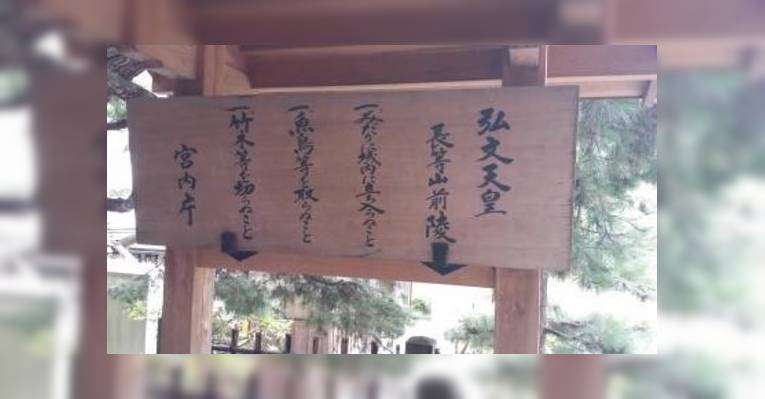 弘文天皇
長等山前陵
一みだりに域内に立ち入らぬこと
一魚鳥等を取らぬこと
一竹木等を切らぬこと
宮内庁